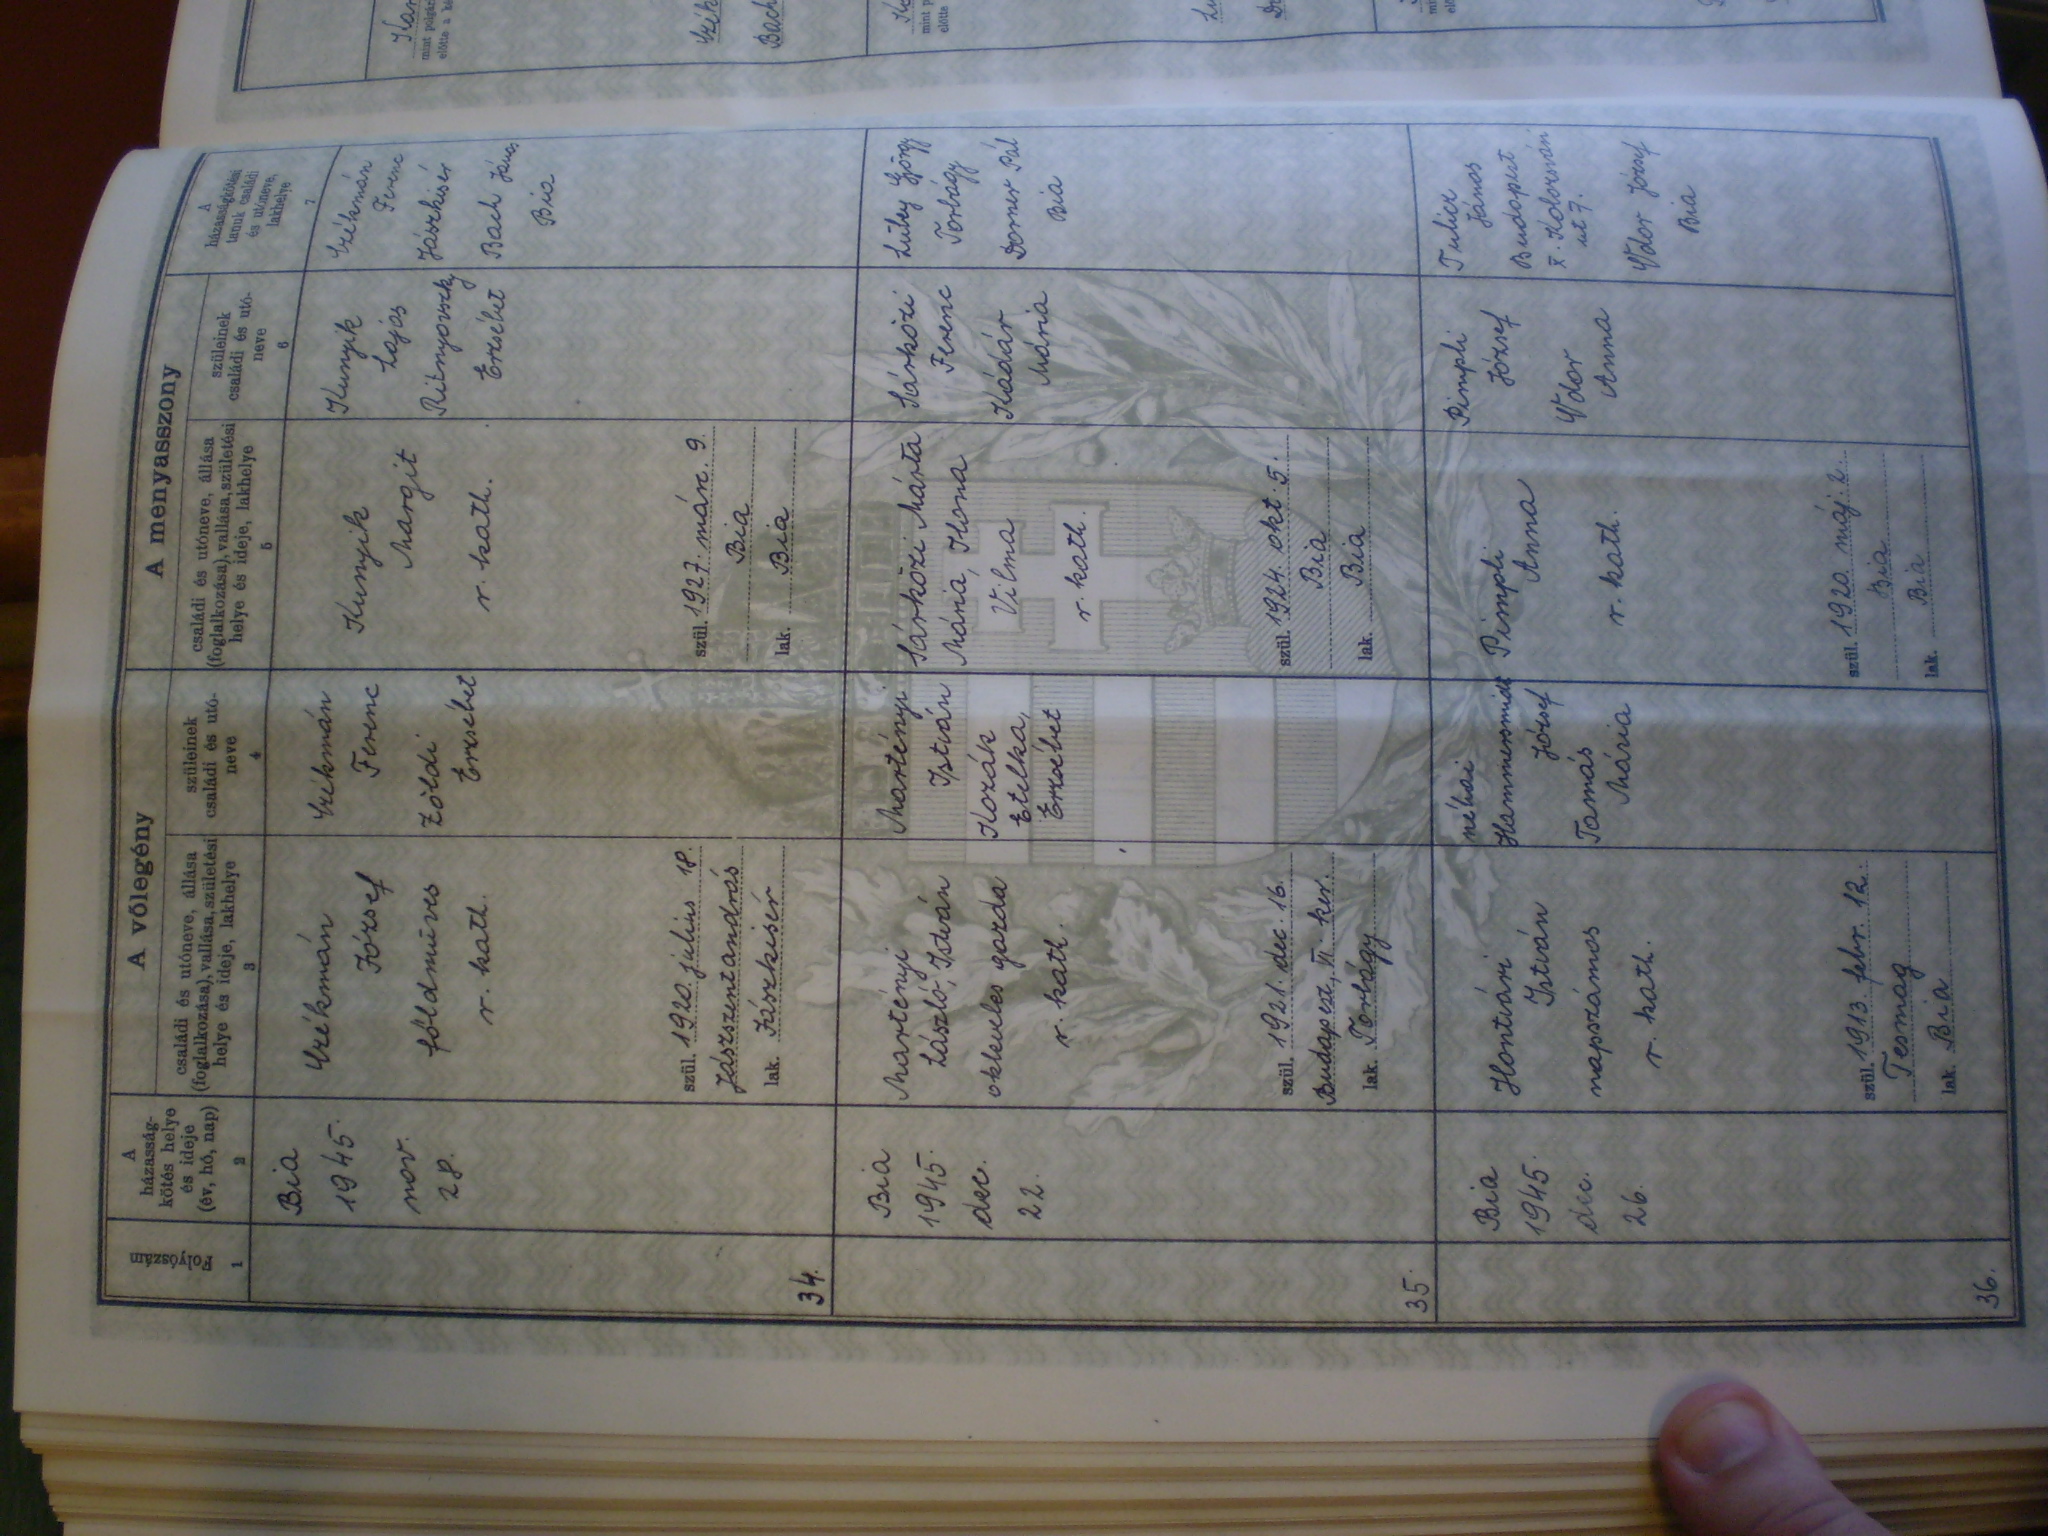 A vőlegény
A menyasszony
Folyószám
A
házasság-
kötés helye
és ideje
(év, hó, nap)
családi és utóneve, állása
(foglalkozása), vallása, születési
helye és ideje, lakhelye
szüleinek
családi és utó-
neve
családi és utóneve, állása
(foglalkozása), vallása, születési
helye és ideje, lakhelye
szüleinek
családi és utó-
neve
A
házasságkötési
tanuk családi
és utóneve,
lakhelye
1
2
3
4
5
6
7
34.
Bia
1945.
nov.
28.
Székmán
József
földmüves
r. kath.
szül. 1920. július 18.
Jászszentandrás
lak. Jászkisér
Székmán
Ferenc
Zöldi
Erzsébet
Kunyik
Margit
r. kath.
szül. 1927. márc. 9.
Bia
lak. Bia
Kunyik
Lajos
Erzsébet
Székmán
Ferenc
Jászkisér
Bach János
Bia
35.
Bia
1945.
dec.
22.
Martényi
László, István
okleveles gazda
r. kath.
szül. 1921. dec. 16.
Budapest, VI. ker.
lak. Torbágy
Martényi
István
Kozák
Etelka,
Erzsébet
Sárközi Márta
Mária, Ilona
Vilma
r. kath.
szül. 1924. okt. 5.
Bia
lak. Bia
Sárközi
Ferenc
Kádár
Mária
György
Torbágy
Dorner Pál
Bia
36.
Bia
1945.
dec.
26.
Hontvári
István
napszámos
r. kath.
szül. 1913. febr. 12.
Tesmag
lak. Bia
néhai
Hammersmidt
József
Tamás
Mária
Pimpli
Anna
r. kath.
szül. 1920. máj. 2.
Bia
lak. Bia
Pimpli
József
Anna
János
Budapest
X. Kolozsvári
út 7.
József
Bia
mint polgári
előtte a
Bach
mint
előtte